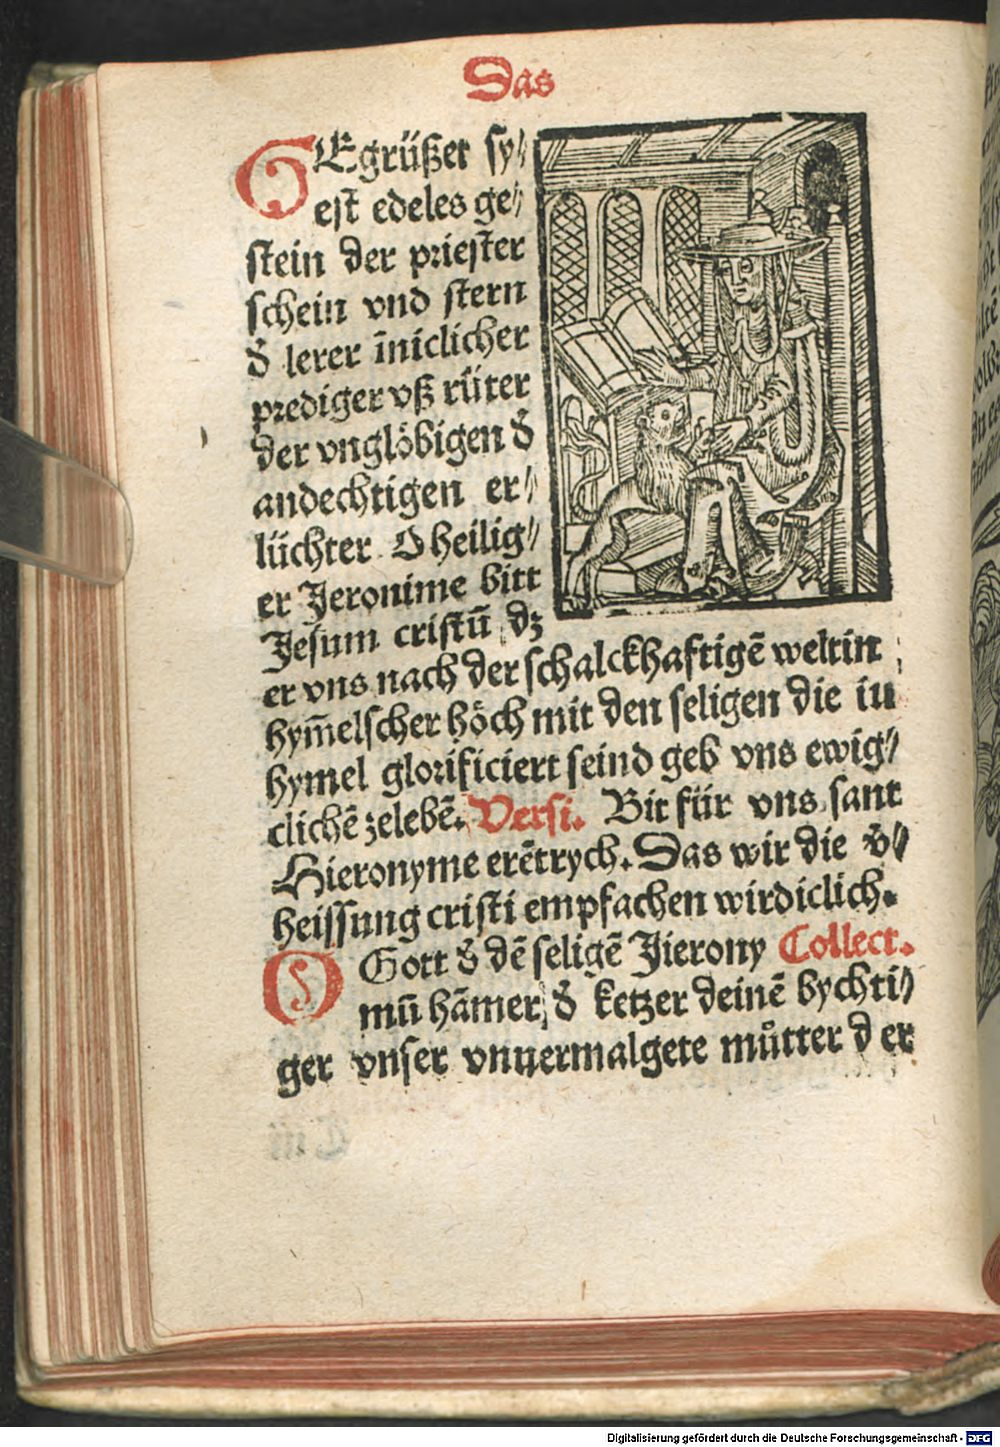 Das
GEgrüßet sy⸗
est edeles ge⸗
stein der priester
schein vnd stern
d̕ lerer īniclicher
prediger vß rüter
der vnglöbigen d̕
andechtigen er⸗
lüchter O heilig⸗
er Jeronime bitt
Jesum cristū dz
er vns nach der schalckhaftigē welt in
hym̄elscher höch mit den seligen die in
hymel glorificiert seind geb vns ewig⸗
clichē zelebē. Versi. Bit für vns sant
Hieronyme erētrych. Das wir die v̕⸗
heissung cristi empfachen wirdiclich.
O Gott d̕ dē seligē Jierony Collect.
mū hām̄er d̕ ketzer deinē bychti⸗
ger vnser vnuermalgete můtter d er
Digitalisierung gefördert durch die Deutsche Forschungsgemeinschaft - DFG